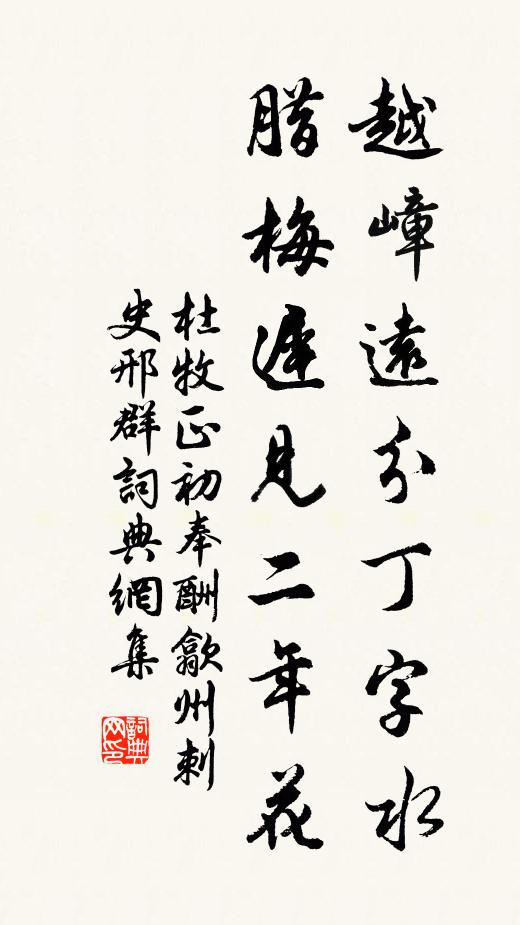 越嶂遠分丁字水
腊梅遲見二年花
杜牧正初奉酬歙州刺
史邢群詞典網集
詞典
网印